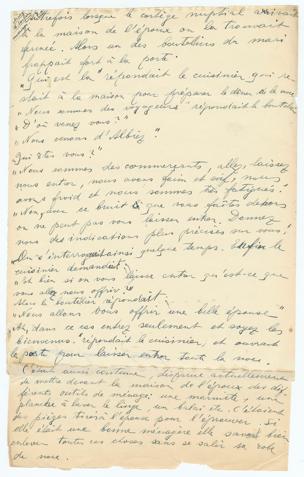 Autrefois lorsque le cortège nuptial arrivait
à la maison de l'épouse on la trouvait
fermée. Alors un des boutilliers du mari
frappait fort à la porte.
"Qui est là" répondait le cuisinier qui re-
stait à la maison pour préparer le dîner de la noce.
"Nous sommes des voyageurs" répondait le boutillier
"D'où venez vous?"
"Nous venons d'Albiez"
Qui êtes vous?"
"Nous sommes des commerçants, allez, laissez
nous entrer, nous avons faim et soif, nous
avons froid et nous sommes très fatigués!
"Non, avec ce bruit que vous faites dehors
on ne peut pas vous laisser entrer. Donnez
nous des indications plus précises sur vous!
On s'interrogeait ainsi quelque temps. Enfin le
cuisinier demandait:
"Et bien si on vous laisse entrer qu'est-ce que
vous allez nous offrir?"
Alors le boutillier répondait
"Nous allons vous offrir une belle épouse"
"Ah, dans ce cas entrez seulement et soyez les
bienvenus" répondait le cuisinier, et ouvrait
la porte pour laisser entrer toute la noce.
C'était aussi coutume, disparue actuellement
de mettre devant la maison de l'époux des dif-
férents outils de ménage: une marmite, une
planche à laver le linge, un balai, etc. C'étaient
des pièges tirés à l'épouse pour l'éprouver. Si
elle était une bonne ménagère elle savait bien
enlever toutes ces choses sans se salir sa robe
de noce.